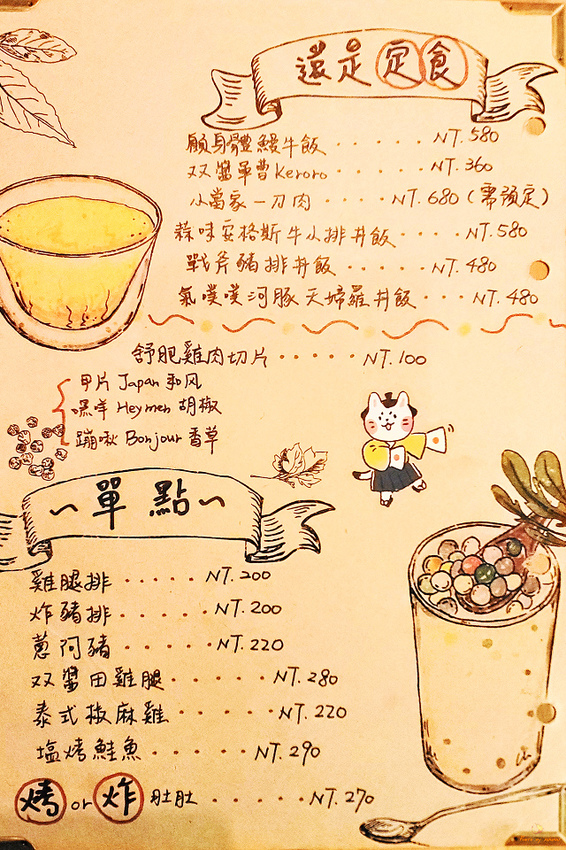 還是定食
顧身體鰻牛飯 ······ NT. 580
双醬單曹 Keroro ····· NT. 360
小當家一刀肉 ···· NT. 680 (需預定)
蒜味安格斯牛小排丼飯 ···· NT. 580
戰斧豬排丼飯 ····· NT. 480
氣噗噗河豚天婦羅丼飯 ··· NT. 480
舒肥雞肉切片 ····· NT. 100
甲片 Japan 和风
嘿咩 Heymen 胡椒
蹦啾 Bonjour 香草
~ 單點 ~
雞腿排 ····· NT. 200
炸豬排 ······ NT. 200
蔥阿豬 ······ NT. 220
双醬田雞腿 ······ NT. 280
泰式椒麻雞 ······ NT. 220
塩烤鮭魚 ······ NT. 290
烤 or 炸 肚肚 ······ NT. 270